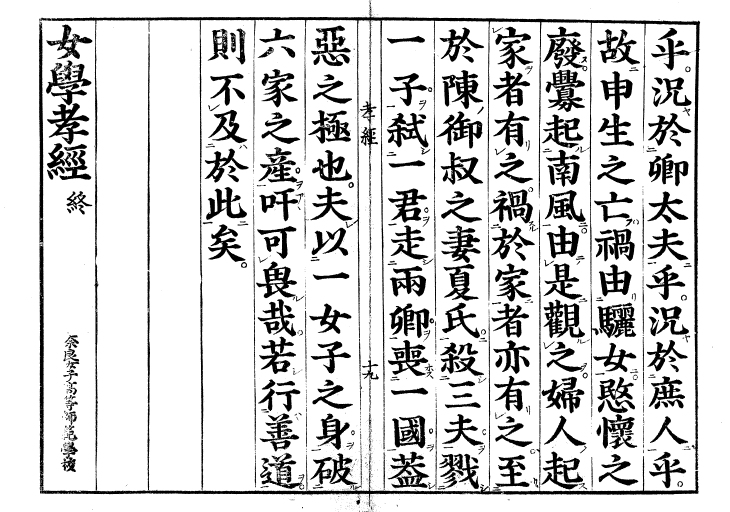 乎。況於卿太夫乎。況於庶人乎。
故申生之亡禍由驪女愍懷之
廢釁起南風由是觀之婦人起
家者有之禍於家者亦有之至
於陳御叔之妻夏氏殺三夫戮
一子弑一君走兩卿喪一國蓋
孝經
十九
惡之極也夫以一女子之身破
六家之産吁可畏哉若行善道
則不及於此矣。
女學孝經 終
奈良女子高等師範學校